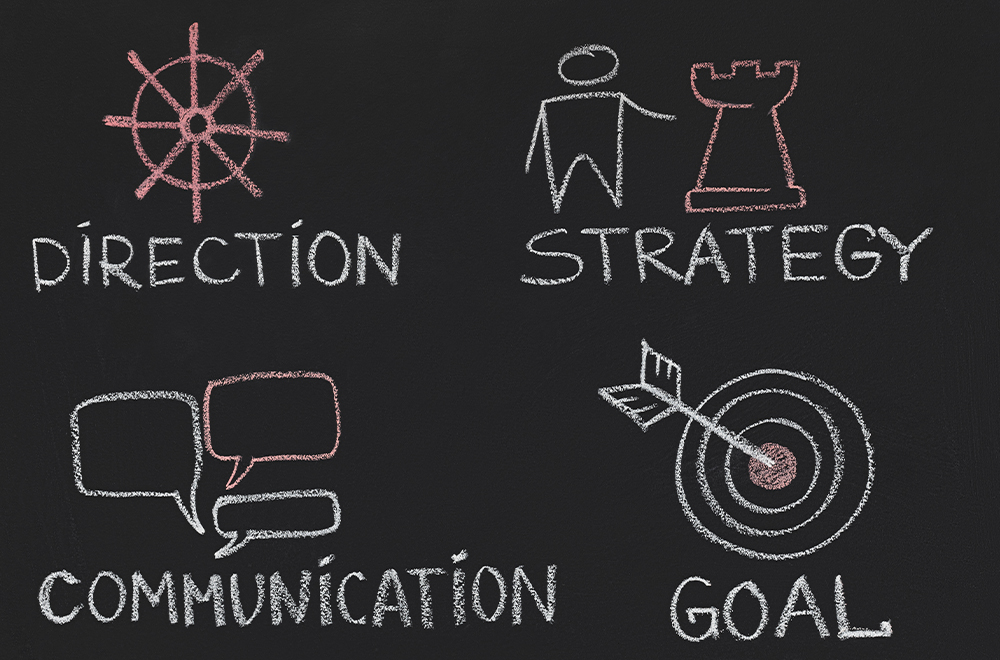 DiRECTiON
STRATEGY
COMMUNiCATiON
GOAL